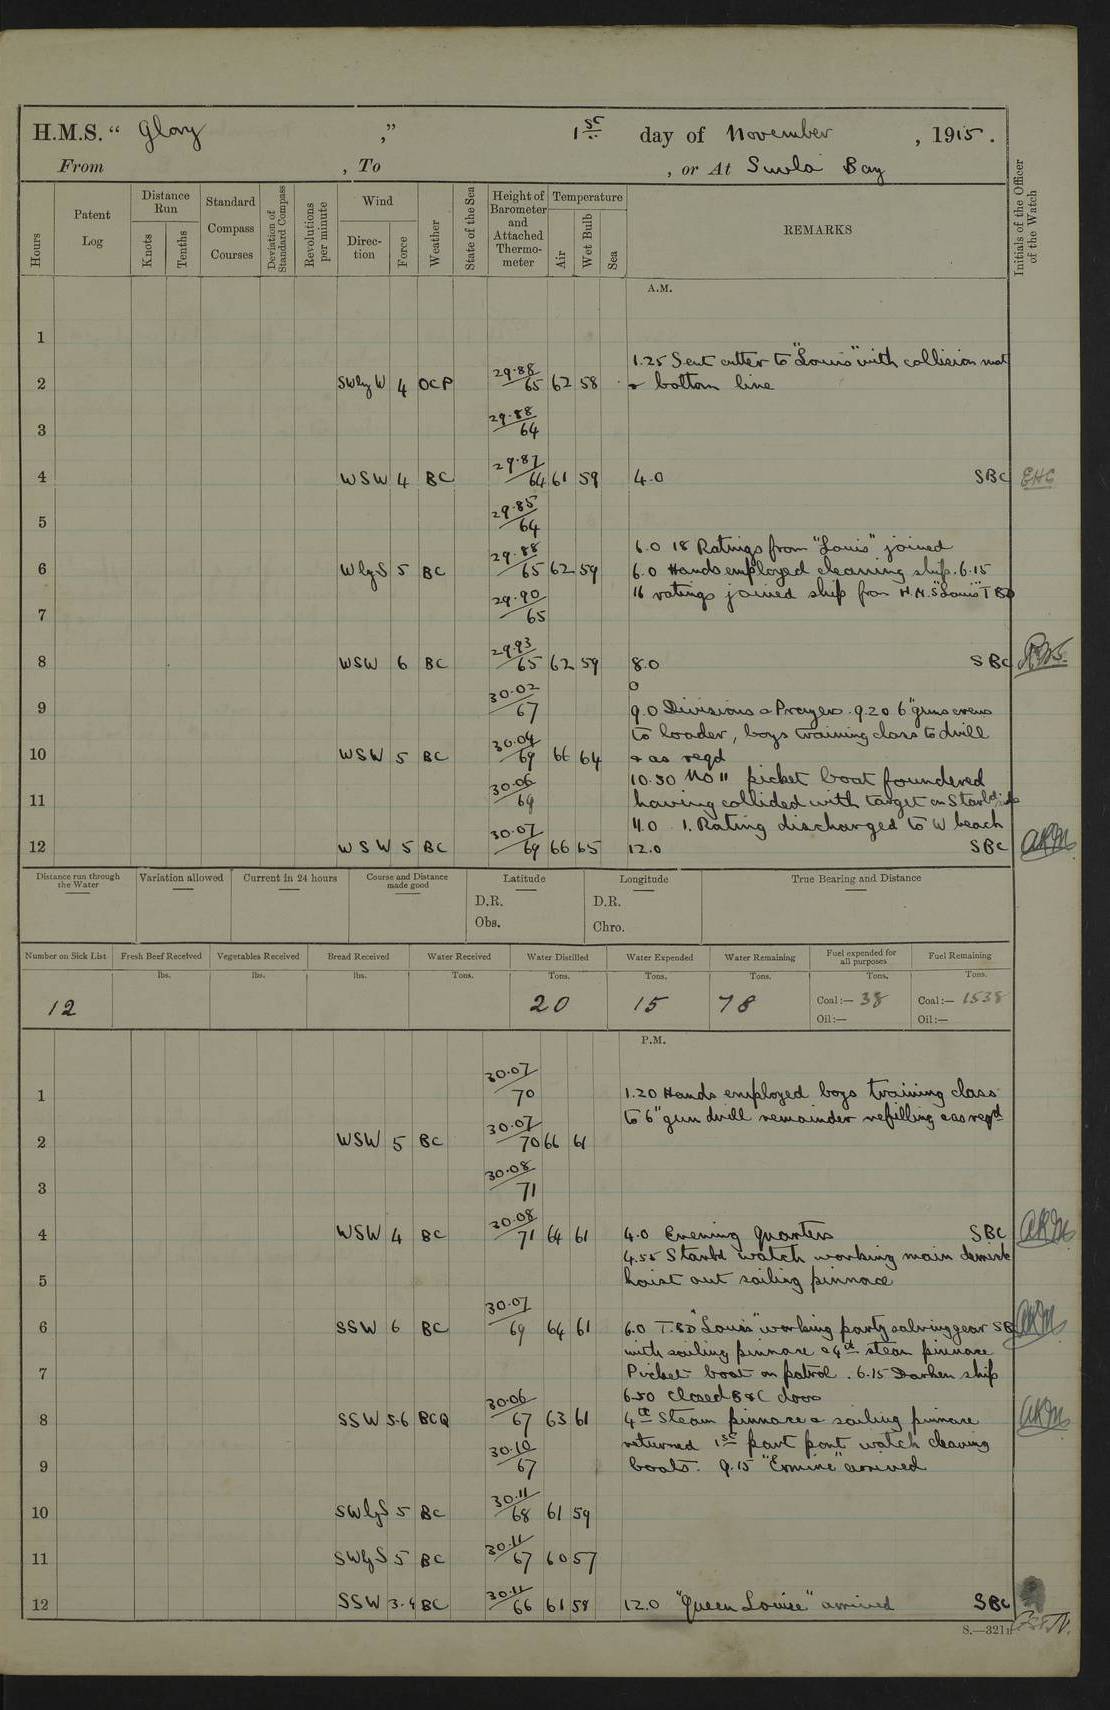 H.M.S. " Glory ," 1st day of November , 1915.
From , To , or At Suvla Bay
Hours
Patent Log
Distance Run
Knots
Tenths
Standard Compass Courses
Deviation of Standard Compass
Revolutions per minute
Wind
Direction
Force
Weather
State of the Sea
Height of Barometer and Attached Thermometer
Temperature
Air
Wet Bulb
Sea
REMARKS
Initials of the Officer of the Watch
A.M.
1
1.25 Sent cutter to "Louis" with collision mat
2 SWbyW 4 OCP 29.88/65 62 58 & bottom line
3 29.88/64
4 WSW 4 BC 29.87/64 61 59 4.0 SBC EHC
5 29.85/64
6.0 18 Ratings from "Louis" joined
6 WbyS 5 BC 29.88/65 62 59 6.0 Hands employed cleaning ship. 6.15
16 ratings joined ship from H.M.S "Louis" TBD
7 29.90/65
8 WSW 6 BC 29.93/65 62 59 8.0 SBC
9 30.02/67 9.0 Divisions & Prayers. 9.20 6" guns crews
to loader, boys training class to drill
10 WSW 5 BC 30.04/69 66 64 & as reqd
10.30 No 11 picket boat foundered
11 30.06/69 having collided with target on Starbd side
11.0 1. Rating discharged to W beach
12 WSW 5 BC 30.07/69 66 65 12.0 SBC AKM
Distance run through the Water
Variation allowed
Current in 24 hours
Course and Distance made good
Latitude
D.R.
Obs.
Longitude
D.R.
Chro.
True Bearing and Distance
Number on Sick List
Fresh Beef Received
Vegetables Received
Bread Received
Water Received
Water Distilled
Water Expended
Water Remaining
Fuel expended for all purposes
Fuel Remaining
lbs. lbs. lbs. Tons. Tons. Tons. Tons. Tons. Tons.
12 20 15 78 Coal:— 38 Coal:— 1538
Oil:— Oil:—
P.M.
1 30.07/70 1.20 Hands employed boys training class
to 6" gun drill remainder refilling & as reqd
2 WSW 5 BC 30.07/70 66 61
3 30.08/71
4 WSW 4 BC 30.08/71 64 61 4.0 Evening Quarters SBC AKM
4.55 Starbd watch working main derrick
5 hoist out sailing pinnace
6 SSW 6 BC 30.07/69 64 61 6.0 T.B.D "Louis" working party salving gear SBC AKM
with sailing pinnace & 4th steam pinnace
7 Picket boat on patrol. 6.15 Darken ship
6.50 Closed B & C doors
8 SSW 5-6 BCQ 30.06/67 63 61 4th Steam pinnace & sailing pinnace AKM
returned 1st part port watch cleaning
9 30.10/67 boats. 9.15 "Ermine" arrived
10 SWbyS 5 BC 30.11/68 61 59
11 SWbyS 5 BC 30.11/67 60 57
12 SSW 3-4 BC 30.11/66 61 58 12.0 "Queen Louise" arrived SBC
S.—321